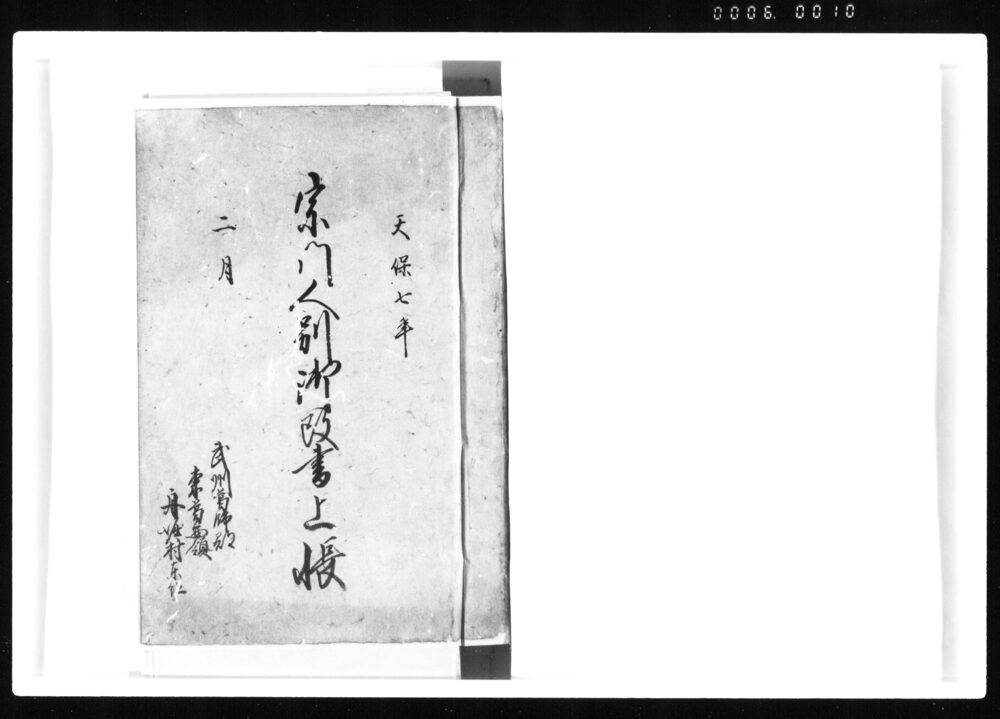 0006. 0010
天保七年
宗門人別御改書上帳
二月
武州葛飾郡
東葛西領
村